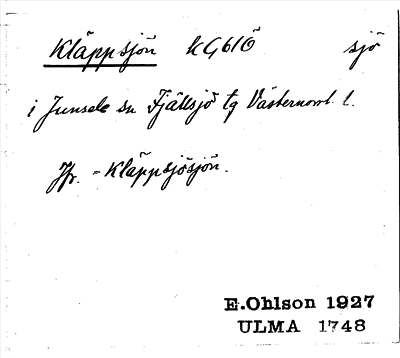 Kläppsjön KG61Ö sjö
i Junsele sn Fjällsjö tg Västernorrl. l.
Jfr. - Kläppsjösjön.
E.Ohlson 1927
ULMA 1748